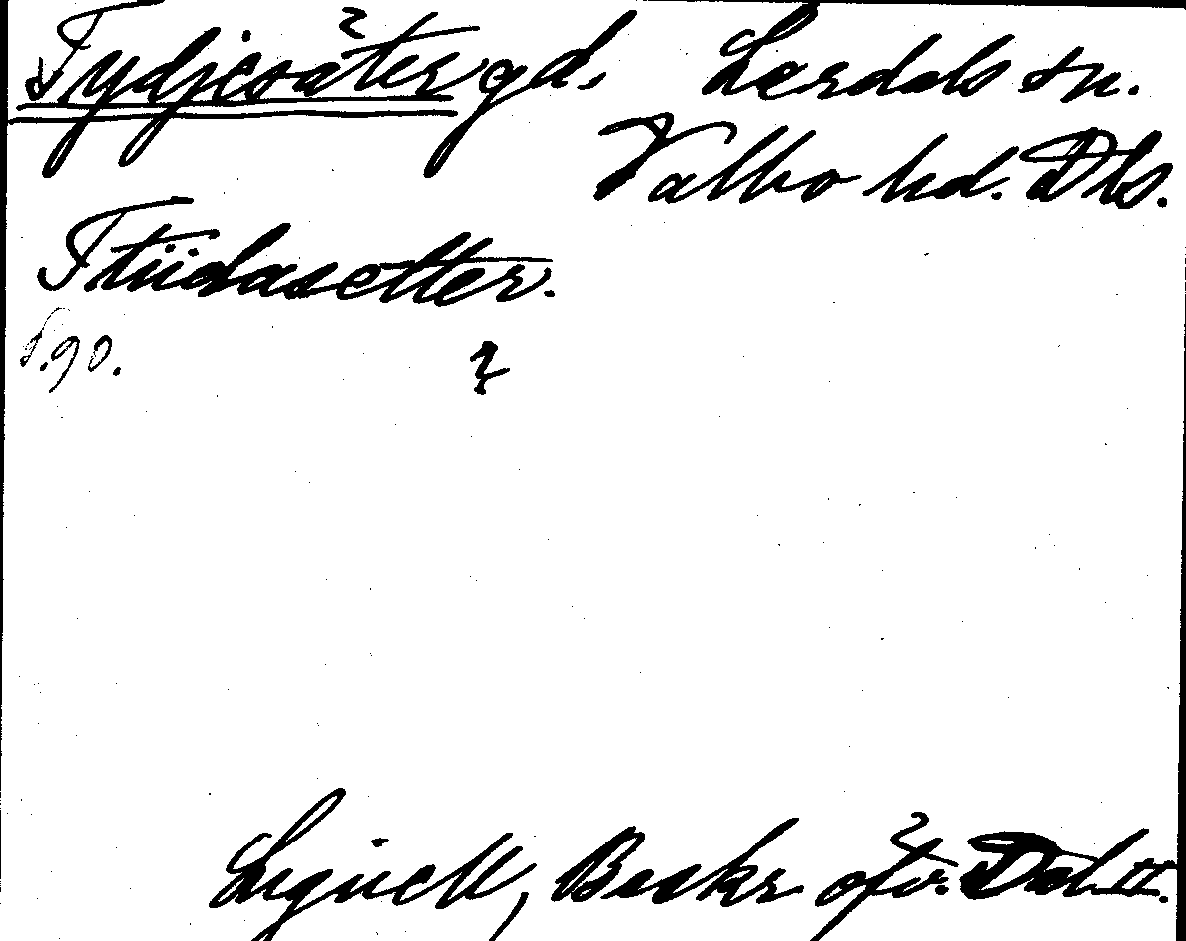 Tydjesäter gd. Lerdals sn.
Valbo hd. Dls.
Ttüdasetter.
S. 90. ?
Lignell, Beskr. öfv. Dal. II.